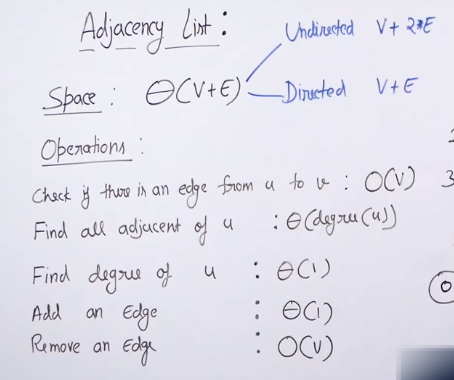 Adjacency List :
Undirected V + 2*E
Space : Θ(V+E)
Directed V + E
Operations :
Check if there is an edge from u to v : O(V)
Find all adjacent of u : Θ(degree(u))
Find degree of u : Θ(1)
Add an Edge : Θ(1)
Remove an Edge : O(V)
3
0